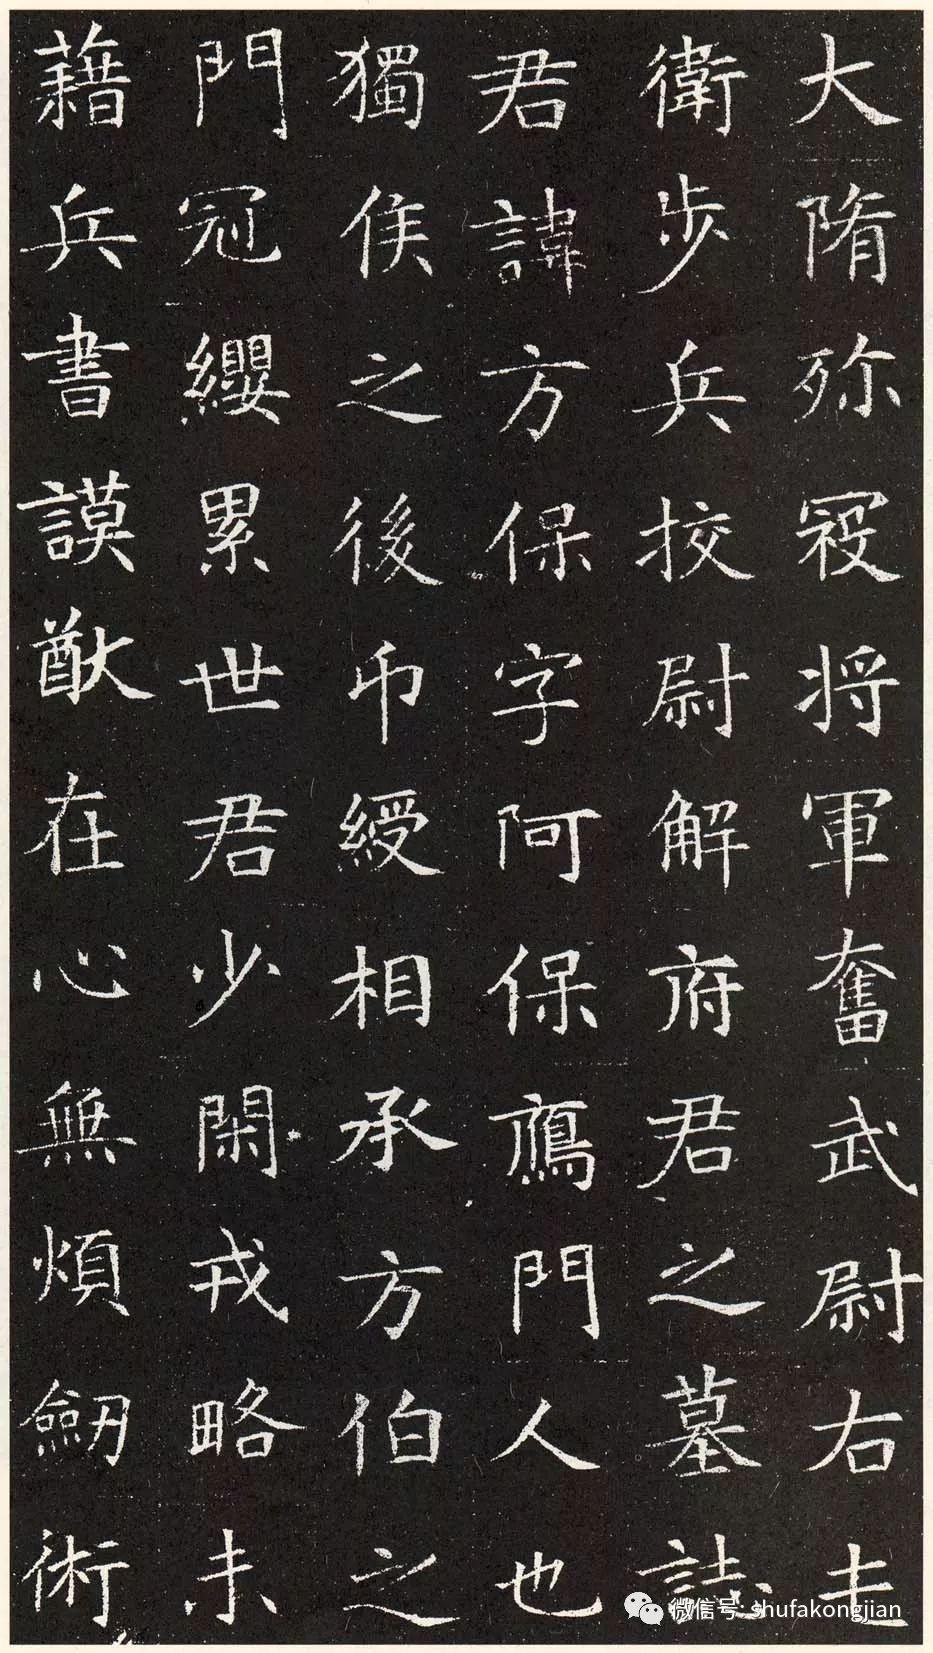 大隋殄寇将軍奮武尉右主
衛步兵挍尉解府君之墓誌
君諱方保字阿保鴈門人也
獨侯之後印綬相承方伯之
門冠纓累世君少閑戎略未
藉兵書謨猷在心無煩劒術
微信号: shufakongjian